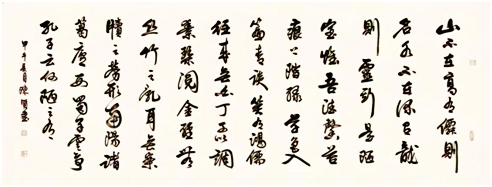 山不在高有僊則
名水不在深有龍
則靈斯是陋
室惟吾德馨苔
痕上階綠草色入
簾青談笑有鴻儒
往來無白丁可以調
素琴閱金經無
絲竹之亂耳無案
牘之勞形南陽諸
葛廬西蜀子雲亭
孔子云何陋之有
甲午